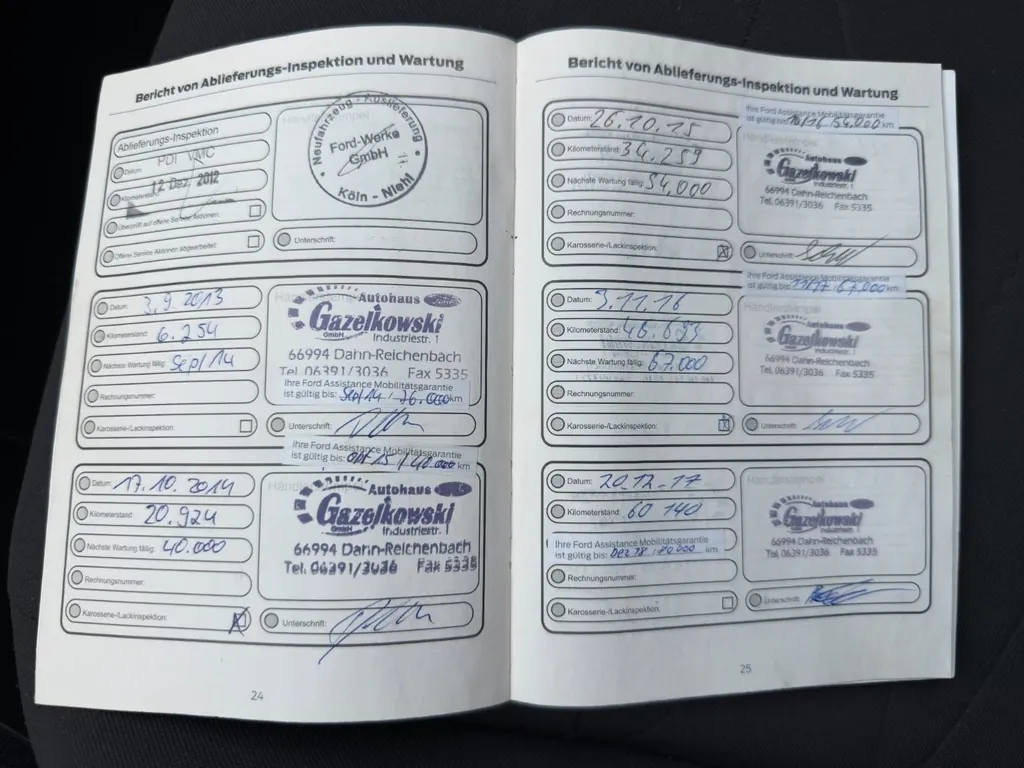 Bericht von Ablieferungs-Inspektion und Wartung
Ablieferungs-Inspektion
PDI VMC
Datum:
12 Dez. 2012
Kilometerstand:
Überprüft auf offene Service Aktionen:
Offene Service Aktionen abgearbeitet:
Neufahrzeug - Auslieferung
Ford-Werke
GmbH
Köln - Niehl
Unterschrift:
Datum: 3.9.2013
Kilometerstand: 6.254
Nächste Wartung fällig: Sep/14
Rechnungsnummer:
Karosserie-/Lackinspektion:
Autohaus
Gazelkowski
GmbH Industriestr. 1
66994 Dahn-Reichenbach
Tel. 06391/3036 Fax 5335
Ihre Ford Assistance Mobilitätsgarantie
ist gültig bis: Sep/14 / 26.000 km
Unterschrift:
Ihre Ford Assistance Mobilitätsgarantie
ist gültig bis: Okt 15 / 40.000 km
Datum: 17.10.2014
Kilometerstand: 20.924
Nächste Wartung fällig: 40.000
Rechnungsnummer:
Karosserie-/Lackinspektion:
Autohaus
Gazelkowski
GmbH Industriestr. 1
66994 Dahn-Reichenbach
Tel. 06391/3036 Fax 5335
Unterschrift:
24
Bericht von Ablieferungs-Inspektion und Wartung
Datum: 26.10.15
Kilometerstand: 34.259
Nächste Wartung fällig: 54,000
Rechnungsnummer:
Karosserie-/Lackinspektion:
Ihre Ford Assistance Mobilitätsgarantie
ist gültig bis: 10/16 / 54.000 km
Händlerstempel
Autohaus
Gazelkowski
Industriestr. 1
66994 Dahn-Reichenbach
Tel. 06391/3036 Fax 5335
Unterschrift:
Ihre Ford Assistance Mobilitätsgarantie
ist gültig bis: 11/17 / 67.000 km
Datum: 3.11.16
Kilometerstand: 46.693
Nächste Wartung fällig: 67.000
Rechnungsnummer:
Karosserie-/Lackinspektion:
Händlerstempel
Autohaus
Gazelkowski
GmbH Industriestr. 1
66994 Dahn-Reichenbach
Tel. 06391/3036 Fax 5335
Unterschrift:
Datum: 20.12.17
Kilometerstand: 60 140
Ihre Ford Assistance Mobilitätsgarantie
ist gültig bis: Dez 18 / 80.000 km
Rechnungsnummer:
Karosserie-/Lackinspektion:
Händlerstempel
Autohaus
Gazelkowski
GmbH Industriestr. 1
66994 Dahn-Reichenbach
Tel. 06391/3036 Fax 5335
Unterschrift:
25